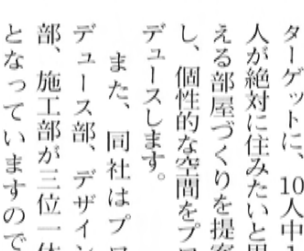 ターゲットに、10人中
人が絶対に住みたいと思
える部屋づくりを提案
し、個性的な空間をプロ
デュースします。
また、同社はプロ
デュース部、デザイン
部、施工部が三位一体
となっていますので